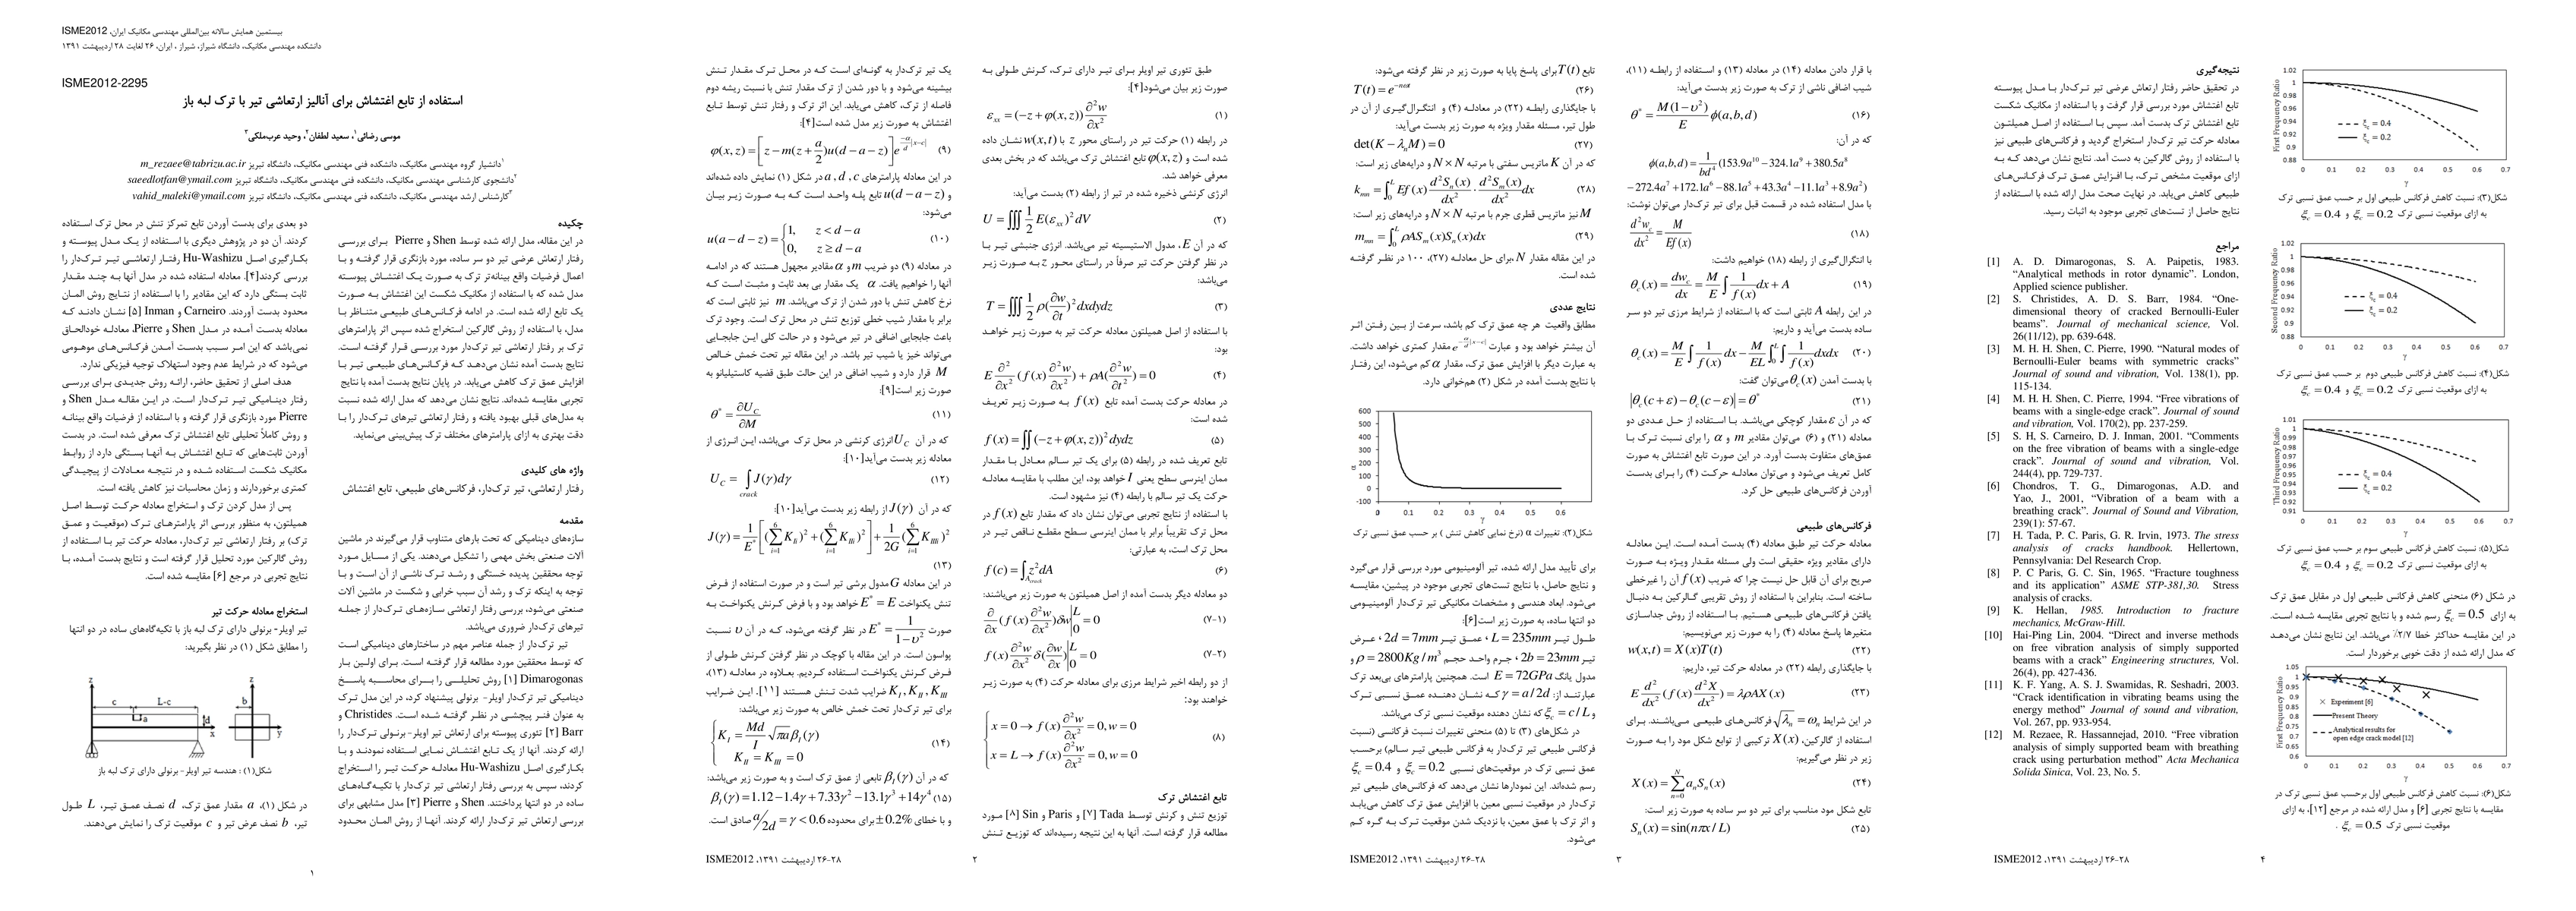 بیستمین همایش سالانه بین‌المللی مهندسی مکانیک ایران، ISME2012
دانشکده مهندسی مکانیک، دانشگاه شیراز، شیراز ، ایران، ۲۶ لغایت ۲۸ اردیبهشت ۱۳۹۱
ISME2012-2295
استفاده از تابع اغتشاش برای آنالیز ارتعاشی تیر با ترک لبه باز
موسی رضائی۱، سعید لطفان۲، وحید عرب‌ملکی۳
۱دانشیار گروه مهندسی مکانیک، دانشکده فنی مهندسی مکانیک، دانشگاه تبریز m_rezaee@tabrizu.ac.ir
۲دانشجوی کارشناسی مهندسی مکانیک، دانشکده فنی مهندسی مکانیک، دانشگاه تبریز saeedlotfan@ymail.com
۳کارشناس ارشد مهندسی مکانیک، دانشکده فنی مهندسی مکانیک، دانشگاه تبریز vahid_maleki@ymail.com
چکیده
در این مقاله، مدل ارائه شده توسط Shen و Pierre برای بررسی
رفتار ارتعاش عرضی تیر دو سر ساده، مورد بازنگری قرار گرفته و با
اعمال فرضیات واقع بینانه‌تر ترک به صورت یک اغتشاش پیوسته
مدل شده که با استفاده از مکانیک شکست این اغتشاش به صورت
یک تابع ارائه شده است. در ادامه فرکانس‌های طبیعی متناظر با
مدل، با استفاده از روش گالرکین استخراج شده سپس اثر پارامترهای
ترک بر رفتار ارتعاشی تیر ترک‌دار مورد بررسی قرار گرفته است.
نتایج بدست آمده نشان می‌دهد که فرکانس‌های طبیعی تیر با
افزایش عمق ترک کاهش می‌یابد. در پایان نتایج بدست آمده با نتایج
تجربی مقایسه شده‌اند. نتایج نشان می‌دهد که مدل ارائه شده نسبت
به مدل‌های قبلی بهبود یافته و رفتار ارتعاشی تیرهای ترک‌دار را با
دقت بهتری به ازای پارامترهای مختلف ترک پیش‌بینی می‌نماید.
واژه های کلیدی
رفتار ارتعاشی، تیر ترک‌دار، فرکانس‌های طبیعی، تابع اغتشاش
مقدمه
سازه‌های دینامیکی که تحت بارهای متناوب قرار می‌گیرند در ماشین
آلات صنعتی بخش مهمی را تشکیل می‌دهند. یکی از مسایل مورد
توجه محققین پدیده خستگی و رشد ترک ناشی از آن است و با
توجه به اینکه ترک و رشد آن سبب خرابی و شکست در ماشین آلات
صنعتی می‌شود، بررسی رفتار ارتعاشی سازه‌های ترک‌دار از جمله
تیرهای ترک‌دار ضروری می‌باشد.
تیر ترک‌دار از جمله عناصر مهم در ساختارهای دینامیکی است
که توسط محققین مورد مطالعه قرار گرفته است. برای اولین بار
Dimarogonas [۱] روش تحلیلی را برای محاسبه پاسخ
دینامیکی تیر ترک‌دار اویلر- برنولی پیشنهاد کرد، در این مدل ترک
به عنوان فنر پیچشی در نظر گرفته شده است. Christides و
Barr [۲] تئوری پیوسته برای ارتعاش تیر اویلر-برنولی ترک‌دار را
ارائه کردند. آنها از یک تابع اغتشاش نمایی استفاده نمودند و با
بکارگیری اصل Hu-Washizu معادله حرکت تیر را استخراج
کردند، سپس به بررسی رفتار ارتعاشی تیر ترک‌دار با تکیه‌گاه‌های
ساده در دو انتها پرداختند. Shen و Pierre [۳] مدل مشابهی برای
بررسی ارتعاش تیر ترک‌دار ارائه کردند. آنها از روش المان محدود
دو بعدی برای بدست آوردن تابع تمرکز تنش در محل ترک استفاده
کردند. آن دو در پژوهش دیگری با استفاده از یک مدل پیوسته و
بکارگیری اصل Hu-Washizu رفتار ارتعاشی تیر ترک‌دار را
بررسی کردند[۴]. معادله استفاده شده در مدل آنها به چند مقدار
ثابت بستگی دارد که این مقادیر را با استفاده از نتایج روش المان
محدود بدست آوردند. Carneiro و Inman [۵] نشان دادند که
معادله بدست آمده در مدل Shen و Pierre، معادله خودالحاق
نمی‌باشد که این امر سبب بدست آمدن فرکانس‌های موهومی
می‌شود که در شرایط عدم وجود استهلاک توجیه فیزیکی ندارد.
هدف اصلی از تحقیق حاضر، ارائه روش جدیدی برای بررسی
رفتار دینامیکی تیر ترک‌دار است. در این مقاله مدل Shen و
Pierre مورد بازنگری قرار گرفته و با استفاده از فرضیات واقع بینانه
و روش کاملاً تحلیلی تابع اغتشاش ترک معرفی شده است. در بدست
آوردن ثابت‌هایی که تابع اغتشاش به آنها بستگی دارد از روابط
مکانیک شکست استفاده شده و در نتیجه معادلات از پیچیدگی
کمتری برخوردارند و زمان محاسبات نیز کاهش یافته است.
پس از مدل کردن ترک و استخراج معادله حرکت توسط اصل
همیلتون، به منظور بررسی اثر پارامترهای ترک (موقعیت و عمق
ترک) بر رفتار ارتعاشی تیر ترک‌دار، معادله حرکت تیر با استفاده از
روش گالرکین مورد تحلیل قرار گرفته است و نتایج بدست آمده، با
نتایج تجربی در مرجع [۶] مقایسه شده است.
استخراج معادله حرکت تیر
تیر اویلر- برنولی دارای ترک لبه باز با تکیه‌گاه‌های ساده در دو انتها
را مطابق شکل (۱) در نظر بگیرید:
z c L-c a d x z b y
شکل(۱) : هندسه تیر اویلر- برنولی دارای ترک لبه باز
در شکل (۱)، a مقدار عمق ترک، d نصف عمق تیر، L طول
تیر، b نصف عرض تیر و c موقعیت ترک را نمایش می‌دهند.
۱
طبق تئوری تیر اویلر برای تیر دارای ترک، کرنش طولی به
صورت زیر بیان می‌شود[۴]:
ε_xx = (−z + φ(x, z)) ∂²w/∂x² (۱)
در رابطه (۱) حرکت تیر در راستای محور z با w(x,t) نشان داده
شده است و φ(x,z) تابع اغتشاش ترک می‌باشد که در بخش بعدی
معرفی خواهد شد.
انرژی کرنشی ذخیره شده در تیر از رابطه (۲) بدست می‌آید:
U = ∭ 1/2 E(ε_xx)² dV (۲)
که در آن E، مدول الاستیسیته تیر می‌باشد. انرژی جنبشی تیر با
در نظر گرفتن حرکت تیر صرفاً در راستای محور z به صورت زیر
می‌باشد:
T = ∭ 1/2 ρ(∂w/∂t)² dxdydz (۳)
با استفاده از اصل همیلتون معادله حرکت تیر به صورت زیر خواهد
بود:
E ∂²/∂x² (f(x) ∂²w/∂x²) + ρA(∂²w/∂t²) = 0 (۴)
در معادله حرکت بدست آمده تابع f(x) به صورت زیر تعریف
شده است:
f(x) = ∬(−z + φ(x, z))² dydz (۵)
تابع تعریف شده در رابطه (۵) برای یک تیر سالم معادل با مقدار
ممان اینرسی سطح یعنی I خواهد بود، این مطلب با مقایسه معادله
حرکت یک تیر سالم با رابطه (۴) نیز مشهود است.
با استفاده از نتایج تجربی می‌توان نشان داد که مقدار تابع f(x) در
محل ترک تقریباً برابر با ممان اینرسی سطح مقطع ناقص تیر در
محل ترک است، به عبارتی:
f(c) = ∫_Acrack z² dA (۶)
دو معادله دیگر بدست آمده از اصل همیلتون به صورت زیر می‌باشند:
∂/∂x (f(x) ∂²w/∂x²) δw |₀^L = 0 (۷-۱)
f(x) ∂²w/∂x² δ(∂w/∂x) |₀^L = 0 (۷-۲)
از دو رابطه اخیر شرایط مرزی برای معادله حرکت (۴) به صورت زیر
خواهند بود:
x = 0 → f(x) ∂²w/∂x² = 0, w = 0
x = L → f(x) ∂²w/∂x² = 0, w = 0 (۸)
تابع اغتشاش ترک
توزیع تنش و کرنش توسط Tada [۷] و Paris و Sin [۸] مورد
مطالعه قرار گرفته است. آنها به این نتیجه رسیده‌اند که توزیع تنش
یک تیر ترک‌دار به گونه‌ای است که در محل ترک مقدار تنش
بیشینه می‌شود و با دور شدن از ترک مقدار تنش با نسبت ریشه دوم
فاصله از ترک، کاهش می‌یابد. این اثر ترک و رفتار تنش توسط تابع
اغتشاش به صورت زیر مدل شده است[۴]:
φ(x, z) = [z − m(z + a/2)u(d − a − z)] e^(−α/d |x−c|) (۹)
در این معادله پارامترهای a, d, c در شکل (۱) نمایش داده شده‌اند
و u(d−a−z) تابع پله واحد است که به صورت زیر بیان
می‌شود:
u(a − d − z) = {1, z < d − a
0, z ≥ d − a (۱۰)
در معادله (۹) دو ضریب m و α مقادیر مجهول هستند که در ادامه
آنها را خواهیم یافت. α یک مقدار بی بعد ثابت و مثبت است که
نرخ کاهش تنش با دور شدن از ترک می‌باشد. m نیز ثابتی است که
برابر با مقدار شیب خطی توزیع تنش در محل ترک است. وجود ترک
باعث جابجایی اضافی در تیر می‌شود و در حالت کلی این جابجایی
می‌تواند خیز یا شیب تیر باشد. در این مقاله تیر تحت خمش خالص
M قرار دارد و شیب اضافی در این حالت طبق قضیه کاستیلیانو به
صورت زیر است[۹]:
θ* = ∂U_C/∂M (۱۱)
که در آن U_C انرژی کرنشی در محل ترک می‌باشد، این انرژی از
معادله زیر بدست می‌آید[۱۰]:
U_C = ∫_crack J(γ)dγ (۱۲)
که در آن J(γ) از رابطه زیر بدست می‌آید[۱۰]:
J(γ) = 1/E* [(∑K_Ii)² + (∑K_IIi)²] + 1/2G (∑K_IIIi)²
(۱۳)
در این معادله G مدول برشی تیر است و در صورت استفاده از فرض
تنش یکنواخت E* = E خواهد بود و با فرض کرنش یکنواخت به
صورت E* = 1/(1−υ²) در نظر گرفته می‌شود، که در آن υ نسبت
پواسون است. در این مقاله با کوچک در نظر گرفتن کرنش طولی از
فرض کرنش یکنواخت استفاده کردیم. بعلاوه در معادله (۱۳)،
K_I, K_II, K_III ضرایب شدت تنش هستند [۱۱]. این ضرایب
برای تیر ترک‌دار تحت خمش خالص به صورت زیر می‌باشد:
K_I = Md/I √πa β_I(γ)
K_II = K_III = 0 (۱۴)
که در آن β_I(γ) تابعی از عمق ترک است و به صورت زیر می‌باشد:
β_I(γ) = 1.12 − 1.4γ + 7.33γ² − 13.1γ³ + 14γ⁴ (۱۵)
و با خطای ±0.2% برای محدوده a/2d = γ < 0.6 صادق است.
ISME2012، ۲۶-۲۸ اردیبهشت ۱۳۹۱
۲
با قرار دادن معادله (۱۴) در معادله (۱۳) و استفاده از رابطه (۱۱)،
شیب اضافی ناشی از ترک به صورت زیر بدست می‌آید:
θ* = M(1−υ²)/E φ(a,b,d) (۱۶)
که در آن:
φ(a,b,d) = 1/bd⁴ (153.9a¹⁰ − 324.1a⁹ + 380.5a⁸
− 272.4a⁷ + 172.1a⁶ − 88.1a⁵ + 43.3a⁴ − 11.1a³ + 8.9a²)
با مدل استفاده شده در قسمت قبل برای تیر ترک‌دار می‌توان نوشت:
d²w_c/dx² = M/Ef(x) (۱۸)
با انتگرال‌گیری از رابطه (۱۸) خواهیم داشت:
θ_c(x) = dw_c/dx = M/E ∫ 1/f(x) dx + A (۱۹)
در این رابطه A ثابتی است که با استفاده از شرایط مرزی تیر دو سر
ساده بدست می‌آید و داریم:
θ_c(x) = M/E ∫ 1/f(x) dx − M/EL ∫₀^L ∫ 1/f(x) dxdx (۲۰)
با بدست آمدن θ_c(x) می‌توان گفت:
|θ_c(c + ε) − θ_c(c − ε)| = θ* (۲۱)
که در آن ε مقدار کوچکی می‌باشد. با استفاده از حل عددی دو
معادله (۲۱) و (۶) می‌توان مقادیر m و α را برای نسبت ترک با
عمق‌های متفاوت بدست آورد. در این صورت تابع اغتشاش به صورت
کامل تعریف می‌شود و می‌توان معادله حرکت (۴) را برای بدست
آوردن فرکانس‌های طبیعی حل کرد.
فرکانس‌های طبیعی
معادله حرکت تیر طبق معادله (۴) بدست آمده است. این معادله
دارای مقادیر ویژه حقیقی است ولی مسئله مقدار ویژه به صورت
صریح برای آن قابل حل نیست چرا که ضریب f(x) آن را غیرخطی
ساخته است. بنابراین با استفاده از روش تقریبی گالرکین به دنبال
یافتن فرکانس‌های طبیعی هستیم. با استفاده از روش جداسازی
متغیرها پاسخ معادله (۴) را به صورت زیر می‌نویسیم:
w(x,t) = X(x)T(t) (۲۲)
با جایگذاری رابطه (۲۲) در معادله حرکت تیر، داریم:
E d²/dx² (f(x) d²X/dx²) = λρAX(x) (۲۳)
در این شرایط √λ_n = ω_n فرکانس‌های طبیعی می‌باشند. برای
استفاده از گالرکین، X(x) ترکیبی از توابع شکل مود را به صورت
زیر در نظر می‌گیریم:
X(x) = ∑_{n=0}^{N} a_n S_n(x) (۲۴)
تابع شکل مود مناسب برای تیر دو سر ساده به صورت زیر است:
S_n(x) = sin(nπx / L) (۲۵)
تابع T(t) برای پاسخ پایا به صورت زیر در نظر گرفته می‌شود:
(۲۶)
با جایگذاری رابطه (۲۲) در معادله (۴) و انتگرال‌گیری از آن در
طول تیر، مسئله مقدار ویژه به صورت زیر بدست می‌آید:
det(K − λ_n M) = 0 (۲۷)
که در آن K ماتریس سفتی با مرتبه N×N و درایه‌های زیر است:
k_mn = ∫₀^L Ef(x) d²S_n(x)/dx² . d²S_m(x)/dx² dx (۲۸)
M نیز ماتریس قطری جرم با مرتبه N×N و درایه‌های زیر است:
m_mn = ∫₀^L ρAS_m(x)S_n(x)dx (۲۹)
در این مقاله مقدار N، برای حل معادله (۲۷)، ۱۰۰ در نظر گرفته
شده است.
نتایج عددی
مطابق واقعیت هر چه عمق ترک کم باشد، سرعت از بین رفتن اثر
آن بیشتر خواهد بود و عبارت e^(−α/d |x−c|) مقدار کمتری خواهد داشت.
به عبارت دیگر با افزایش عمق ترک، مقدار α کم می‌شود، این رفتار
با نتایج بدست آمده در شکل (۲) همخوانی دارد.
600 500 400 300 200 100 0 -100
α
0 0.1 0.2 0.3 0.4 0.5 0.6 0.7
γ
شکل(۲): تغییرات α (نرخ نمایی کاهش تنش ) بر حسب عمق نسبی ترک
برای تأیید مدل ارائه شده، تیر آلومینیومی مورد بررسی قرار می‌گیرد
و نتایج حاصل، با نتایج تست‌های تجربی موجود در پیشین، مقایسه
می‌شود. ابعاد هندسی و مشخصات مکانیکی تیر ترک‌دار آلومینیومی
دو انتها ساده، به صورت زیر است[۶]:
طول تیر L = 235mm ، عمق تیر 2d = 7mm ، عرض
تیر 2b = 23mm، جرم واحد حجم ρ = 2800Kg/m³ و
مدول یانگ E = 72GPa است. همچنین پارامترهای بی‌بعد ترک
عبارتند از: γ = a/2d که نشان دهنده عمق نسبی ترک
و ξ_c = c/L که نشان دهنده موقعیت نسبی ترک می‌باشد.
در شکل‌های (۳) تا (۵) منحنی تغییرات نسبت فرکانسی (نسبت
فرکانس طبیعی تیر ترک‌دار به فرکانس طبیعی تیر سالم) برحسب
عمق نسبی ترک در موقعیت‌های نسبی ξ_c = 0.2 و ξ_c = 0.4
رسم شده‌اند. این نمودارها نشان می‌دهد که فرکانس‌های طبیعی تیر
ترک‌دار در موقعیت نسبی معین با افزایش عمق ترک کاهش می‌یابد
و اثر ترک با عمق معین، با نزدیک شدن موقعیت ترک به گره کم
می‌شود.
ISME2012، ۲۶-۲۸ اردیبهشت ۱۳۹۱
۳
1.02 1 0.98 0.96 0.94 0.92 0.9 0.88
First Frequency Ratio
ξ_c = 0.4
ξ_c = 0.2
0 0.1 0.2 0.3 0.4 0.5 0.6 0.7
γ
شکل(۳): نسبت کاهش فرکانس طبیعی اول بر حسب عمق نسبی ترک
به ازای موقعیت نسبی ترک ξ_c = 0.2 و ξ_c = 0.4
1.02 1 0.98 0.96 0.94 0.92 0.9 0.88
Second Frequency Ratio
ξ_c = 0.4
ξ_c = 0.2
0 0.1 0.2 0.3 0.4 0.5 0.6 0.7
γ
شکل(۴): نسبت کاهش فرکانس طبیعی دوم بر حسب عمق نسبی ترک
به ازای موقعیت نسبی ترک ξ_c = 0.2 و ξ_c = 0.4
1.01 1 0.99 0.98 0.97 0.96 0.95 0.94 0.93 0.92 0.91
Third Frequency Ratio
ξ_c = 0.4
ξ_c = 0.2
0 0.1 0.2 0.3 0.4 0.5 0.6 0.7
γ
شکل(۵): نسبت کاهش فرکانس طبیعی سوم بر حسب عمق نسبی ترک
به ازای موقعیت نسبی ترک ξ_c = 0.2 و ξ_c = 0.4
در شکل (۶) منحنی کاهش فرکانس طبیعی اول در مقابل عمق ترک
به ازای ξ_c = 0.5 رسم شده و با نتایج تجربی مقایسه شده است.
در این مقایسه حداکثر خطا ۲/۷٪ می‌باشد. این نتایج نشان می‌دهد
که مدل ارائه شده از دقت خوبی برخوردار است.
1.05 1 0.95 0.9 0.85 0.8 0.75 0.7 0.65 0.6
First Frequency Ratio
Experiment [6]
Present Theory
Analytical results for
open edge crack model [12]
0 0.1 0.2 0.3 0.4 0.5 0.6 0.7
γ
شکل(۶): نسبت کاهش فرکانس طبیعی اول برحسب عمق نسبی ترک در
مقایسه با نتایج تجربی [۶] و مدل ارائه شده در مرجع [۱۲]، به ازای
موقعیت نسبی ترک ξ_c = 0.5 .
نتیجه‌گیری
در تحقیق حاضر رفتار ارتعاش عرضی تیر ترک‌دار با مدل پیوسته
تابع اغتشاش مورد بررسی قرار گرفت و با استفاده از مکانیک شکست
تابع اغتشاش ترک بدست آمد. سپس با استفاده از اصل همیلتون
معادله حرکت تیر ترک‌دار استخراج گردید و فرکانس‌های طبیعی نیز
با استفاده از روش گالرکین به دست آمد. نتایج نشان می‌دهد که به
ازای موقعیت مشخص ترک، با افزایش عمق ترک فرکانس‌های
طبیعی کاهش می‌یابد. در نهایت صحت مدل ارائه شده با استفاده از
نتایج حاصل از تست‌های تجربی موجود به اثبات رسید.
مراجع
[1] A. D. Dimarogonas, S. A. Paipetis, 1983.
“Analytical methods in rotor dynamic”. London,
Applied science publisher.
[2] S. Christides, A. D. S. Barr, 1984. “One-
dimensional theory of cracked Bernoulli-Euler
beams”. Journal of mechanical science, Vol.
26(11/12), pp. 639-648.
[3] M. H. H. Shen, C. Pierre, 1990. “Natural modes of
Bernoulli-Euler beams with symmetric cracks”
Journal of sound and vibration, Vol. 138(1), pp.
115-134.
[4] M. H. H. Shen, C. Pierre, 1994. “Free vibrations of
beams with a single-edge crack”. Journal of sound
and vibration, Vol. 170(2), pp. 237-259.
[5] S. H, S. Carneiro, D. J. Inman, 2001. “Comments
on the free vibration of beams with a single-edge
crack”. Journal of sound and vibration, Vol.
244(4), pp. 729-737.
[6] Chondros, T. G., Dimarogonas, A.D. and
Yao, J., 2001, “Vibration of a beam with a
breathing crack”. Journal of Sound and Vibration,
239(1): 57-67.
[7] H. Tada, P. C. Paris, G. R. Irvin, 1973. The stress
analysis of cracks handbook. Hellertown,
Pennsylvania: Del Research Crop.
[8] P. C Paris, G. C. Sin, 1965. “Fracture toughness
and its application” ASME STP-381,30. Stress
analysis of cracks.
[9] K. Hellan, 1985. Introduction to fracture
mechanics, McGraw-Hill.
[10] Hai-Ping Lin, 2004. “Direct and inverse methods
on free vibration analysis of simply supported
beams with a crack” Engineering structures, Vol.
26(4), pp. 427-436.
[11] K. F. Yang, A. S. J. Swamidas, R. Seshadri, 2003.
“Crack identification in vibrating beams using the
energy method” Journal of sound and vibration,
Vol. 267, pp. 933-954.
[12] M. Rezaee, R. Hassannejad, 2010. “Free vibration
analysis of simply supported beam with breathing
crack using perturbation method” Acta Mechanica
Solida Sinica, Vol. 23, No. 5.
ISME2012، ۲۶-۲۸ اردیبهشت ۱۳۹۱
۴